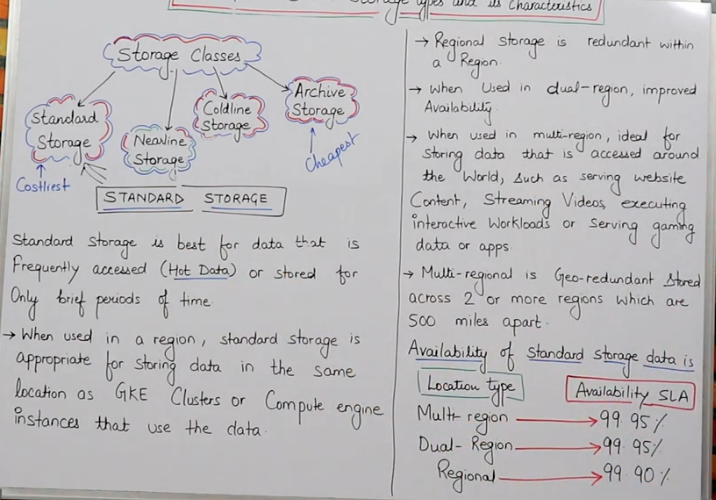 Storage types and its Characteristics
Storage Classes
Standard
Storage
Nearline
Storage
Coldline
Storage
Archive
Storage
Costliest
Cheapest
STANDARD STORAGE
Standard Storage is best for data that is
Frequently accessed (Hot Data) or stored for
Only brief periods of time
→ When used in a region, standard storage is
appropriate for storing data in the same
location as GKE Clusters or Compute engine
instances that use the data.
→ Regional Storage is redundant within
a Region.
→ When Used in dual-region, improved
Availability.
→ When used in multi-region, ideal for
Storing data that is accessed around
the World, Such as serving website
Content, Streaming Videos, executing
interactive Workloads or Serving gaming
data or apps.
→ Multi-regional is Geo-redundant Stored
across 2 or more regions which are
500 miles apart.
Availability of Standard Storage data is
Location type Availability SLA
Multi-region → 99.95%
Dual-Region → 99.95%
Regional → 99.90%